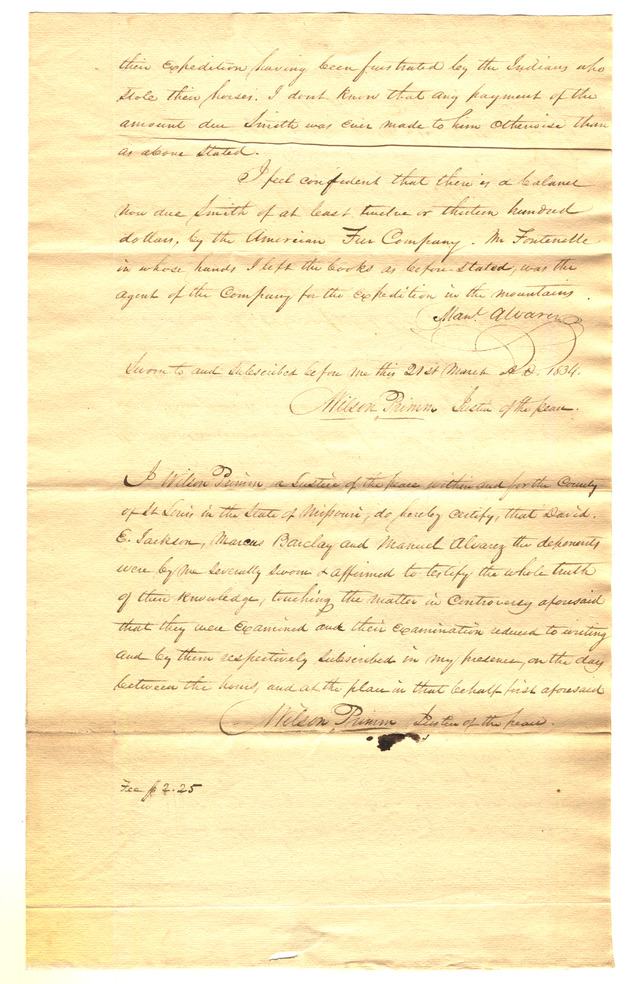 their expedition having been frustrated by the Indians who
stole their horses. I dont know that any payment of the
amount due Smith was ever made to him otherwise than
as above stated.
I feel confident that there is a balance
now due Smith of at least twelve or thirteen hundred
dollars, by the American Fur Company. Mr Fontenelle
in whose hands I left the books as before stated, was the
agent of the Company for the expedition in the mountains.
Manl Alvarez
Sworn to and subscribed before me this 21st March A.D. 1834.
Wilson Primm Justice of the peace.
I Wilson Primm a Justice of the peace within and for the County
of St Louis in the State of Missouri, do hereby certify, that David.
E. Jackson, Marcus Barclay and Manuel Alvarez the deponents
were by me severally sworn & affirmed to testify the whole truth
of their knowledge, touching the matter in controversy aforesaid
that they were examined and their examination reduced to writing
and by them respectively subscribed in my presence, on the day
between the hours, and at the place in that behalf first aforesaid
Wilson Primm Justice of the peace.
Fee $2.25